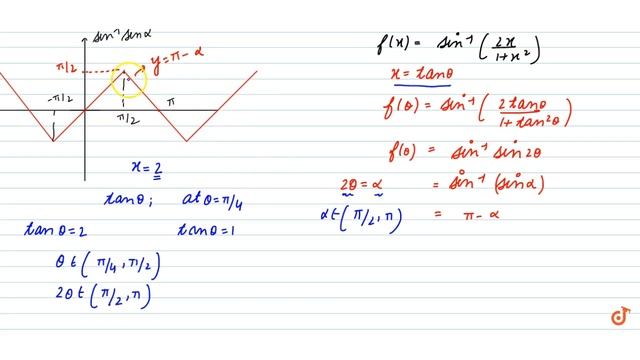 sin⁻¹ sin α
π/2
y = π - α
-π/2
π/2
π
x = 2
tan θ ; at θ = π/4
tan θ = 2 tan θ = 1
θ ∈ ( π/4 , π/2 )
2θ ∈ ( π/2 , π )
f(x) = sin⁻¹ ( 2x / 1+x² )
x = tan θ
f(θ) = sin⁻¹ ( 2 tan θ / 1 + tan² θ )
f(θ) = sin⁻¹ sin 2θ
2θ = α = sin⁻¹ (sin α)
α ∈ ( π/2 , π ) = π - α